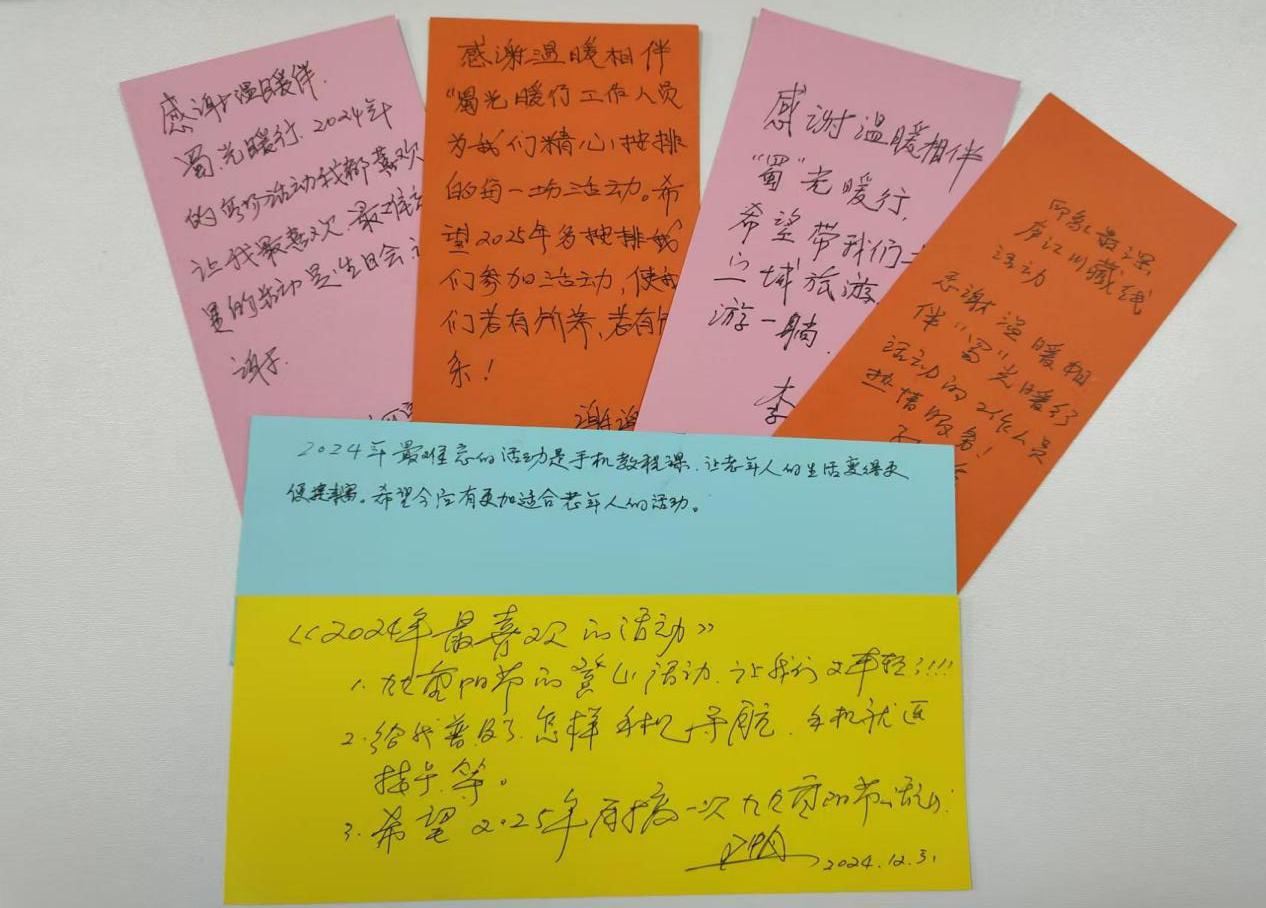 感谢温暖伴.
蜀光暖行.2024年
的每场活动我都喜欢
让我最喜欢.最难忘
是的活动是生日会.
谢子.
感谢温暖相伴
“蜀光暖行工作人员
为我们精心按排
的每一场活动。希
望2025年多按排我
们参加活动,使我
们若有所养,若有所
乐!
谢谢
感谢温暖相伴
“蜀”光暖行,
希望带我们
城旅游
游一躺.
李
印象最深
川藏线
活动
感谢温暖相
伴“蜀”光暖行
活动的工作人员
热情服务!
2024年最难忘的活动是手机教程课.让老年人的生活变得更
便捷丰富。希望今后有更加适合老年人的活动。
《2024年最喜欢的活动》
1.九九重阳节的登山活动.让我们又年轻了!!!
2.给我普及了怎样手机导航.手机就医
挂号等。
3.希望2025年再搞一次九九重阳节活动.
2024.12.31